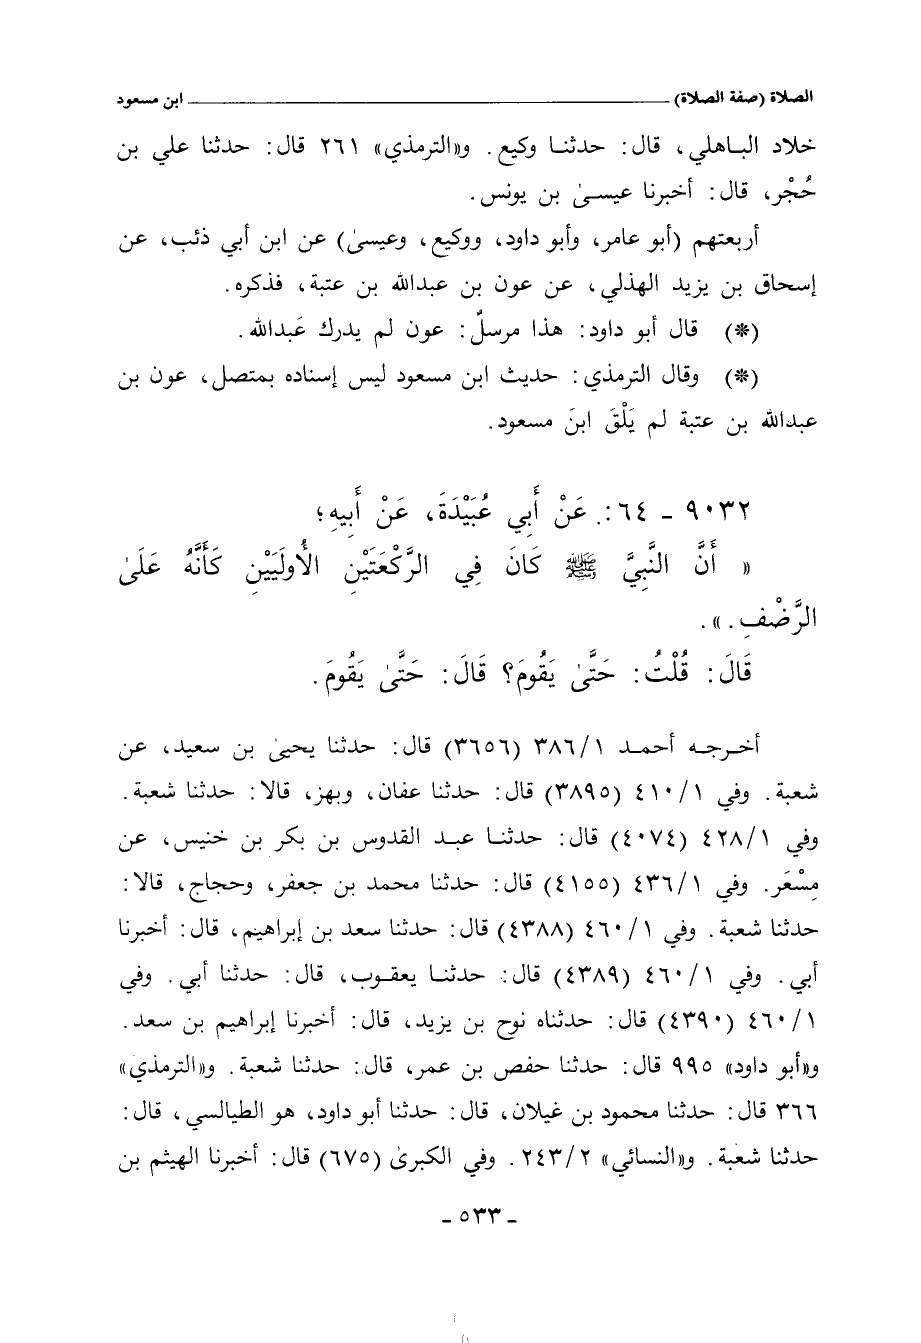 الصلاة (صفة الصلاة) ـــــــــــــــــــــــــــــــــــــــ ابن مسعود
خلاد الباهلي، قال: حدثنا وكيع. و«الترمذي» ٢٦١ قال: حدثنا علي بن
حُجْر، قال: أخبرنا عيسىٰ بن يونس.
أربعتهم (أبو عامر، وأبو داود، ووكيع، وعيسىٰ) عن ابن أبي ذئب، عن
إسحاق بن يزيد الهذلي، عن عون بن عبدالله بن عتبة، فذكره.
(*) قال أبو داود: هذا مرسلٌ: عون لم يدرك عَبدالله.
(*) وقال الترمذي: حديث ابن مسعود ليس إسناده بمتصل، عون بن
عبدالله بن عتبة لم يَلْقَ ابنَ مسعود.
٩٠٣٢ - ٦٤: عَنْ أَبِي عُبَيْدَةَ، عَنْ أَبِيهِ؛
« أَنَّ النَّبِيَّ ﷺ كَانَ فِي الرَّكْعَتَيْنِ الأُولَيَيْنِ كَأَنَّهُ عَلَىٰ
الرَّضْفِ.».
قَالَ: قُلْتُ: حَتَّىٰ يَقُومَ؟ قَالَ: حَتَّىٰ يَقُومَ.
أخرجه أحمد ٣٨٦/١ (٣٦٥٦) قال: حدثنا يحيىٰ بن سعيد، عن
شعبة. وفي ٤١٠/١ (٣٨٩٥) قال: حدثنا عفان، وبهز، قالا: حدثنا شعبة.
وفي ٤٢٨/١ (٤٠٧٤) قال: حدثنا عبد القدوس بن بكر بن خنيس، عن
مِسْعَر. وفي ٤٣٦/١ (٤١٥٥) قال: حدثنا محمد بن جعفر، وحجاج، قالا:
حدثنا شعبة. وفي ٤٦٠/١ (٤٣٨٨) قال: حدثنا سعد بن إبراهيم، قال: أخبرنا
أبي. وفي ٤٦٠/١ (٤٣٨٩) قال: حدثنا يعقوب، قال: حدثنا أبي. وفي
٤٦٠/١ (٤٣٩٠) قال: حدثناه نوح بن يزيد، قال: أخبرنا إبراهيم بن سعد.
و«أبو داود» ٩٩٥ قال: حدثنا حفص بن عمر، قال: حدثنا شعبة. و«الترمذي»
٣٦٦ قال: حدثنا محمود بن غيلان، قال: حدثنا أبو داود، هو الطيالسي، قال:
حدثنا شعبة. و«النسائي» ٢٤٣/٢. وفي الكبرىٰ (٦٧٥) قال: أخبرنا الهيثم بن
- ٥٣٣ -